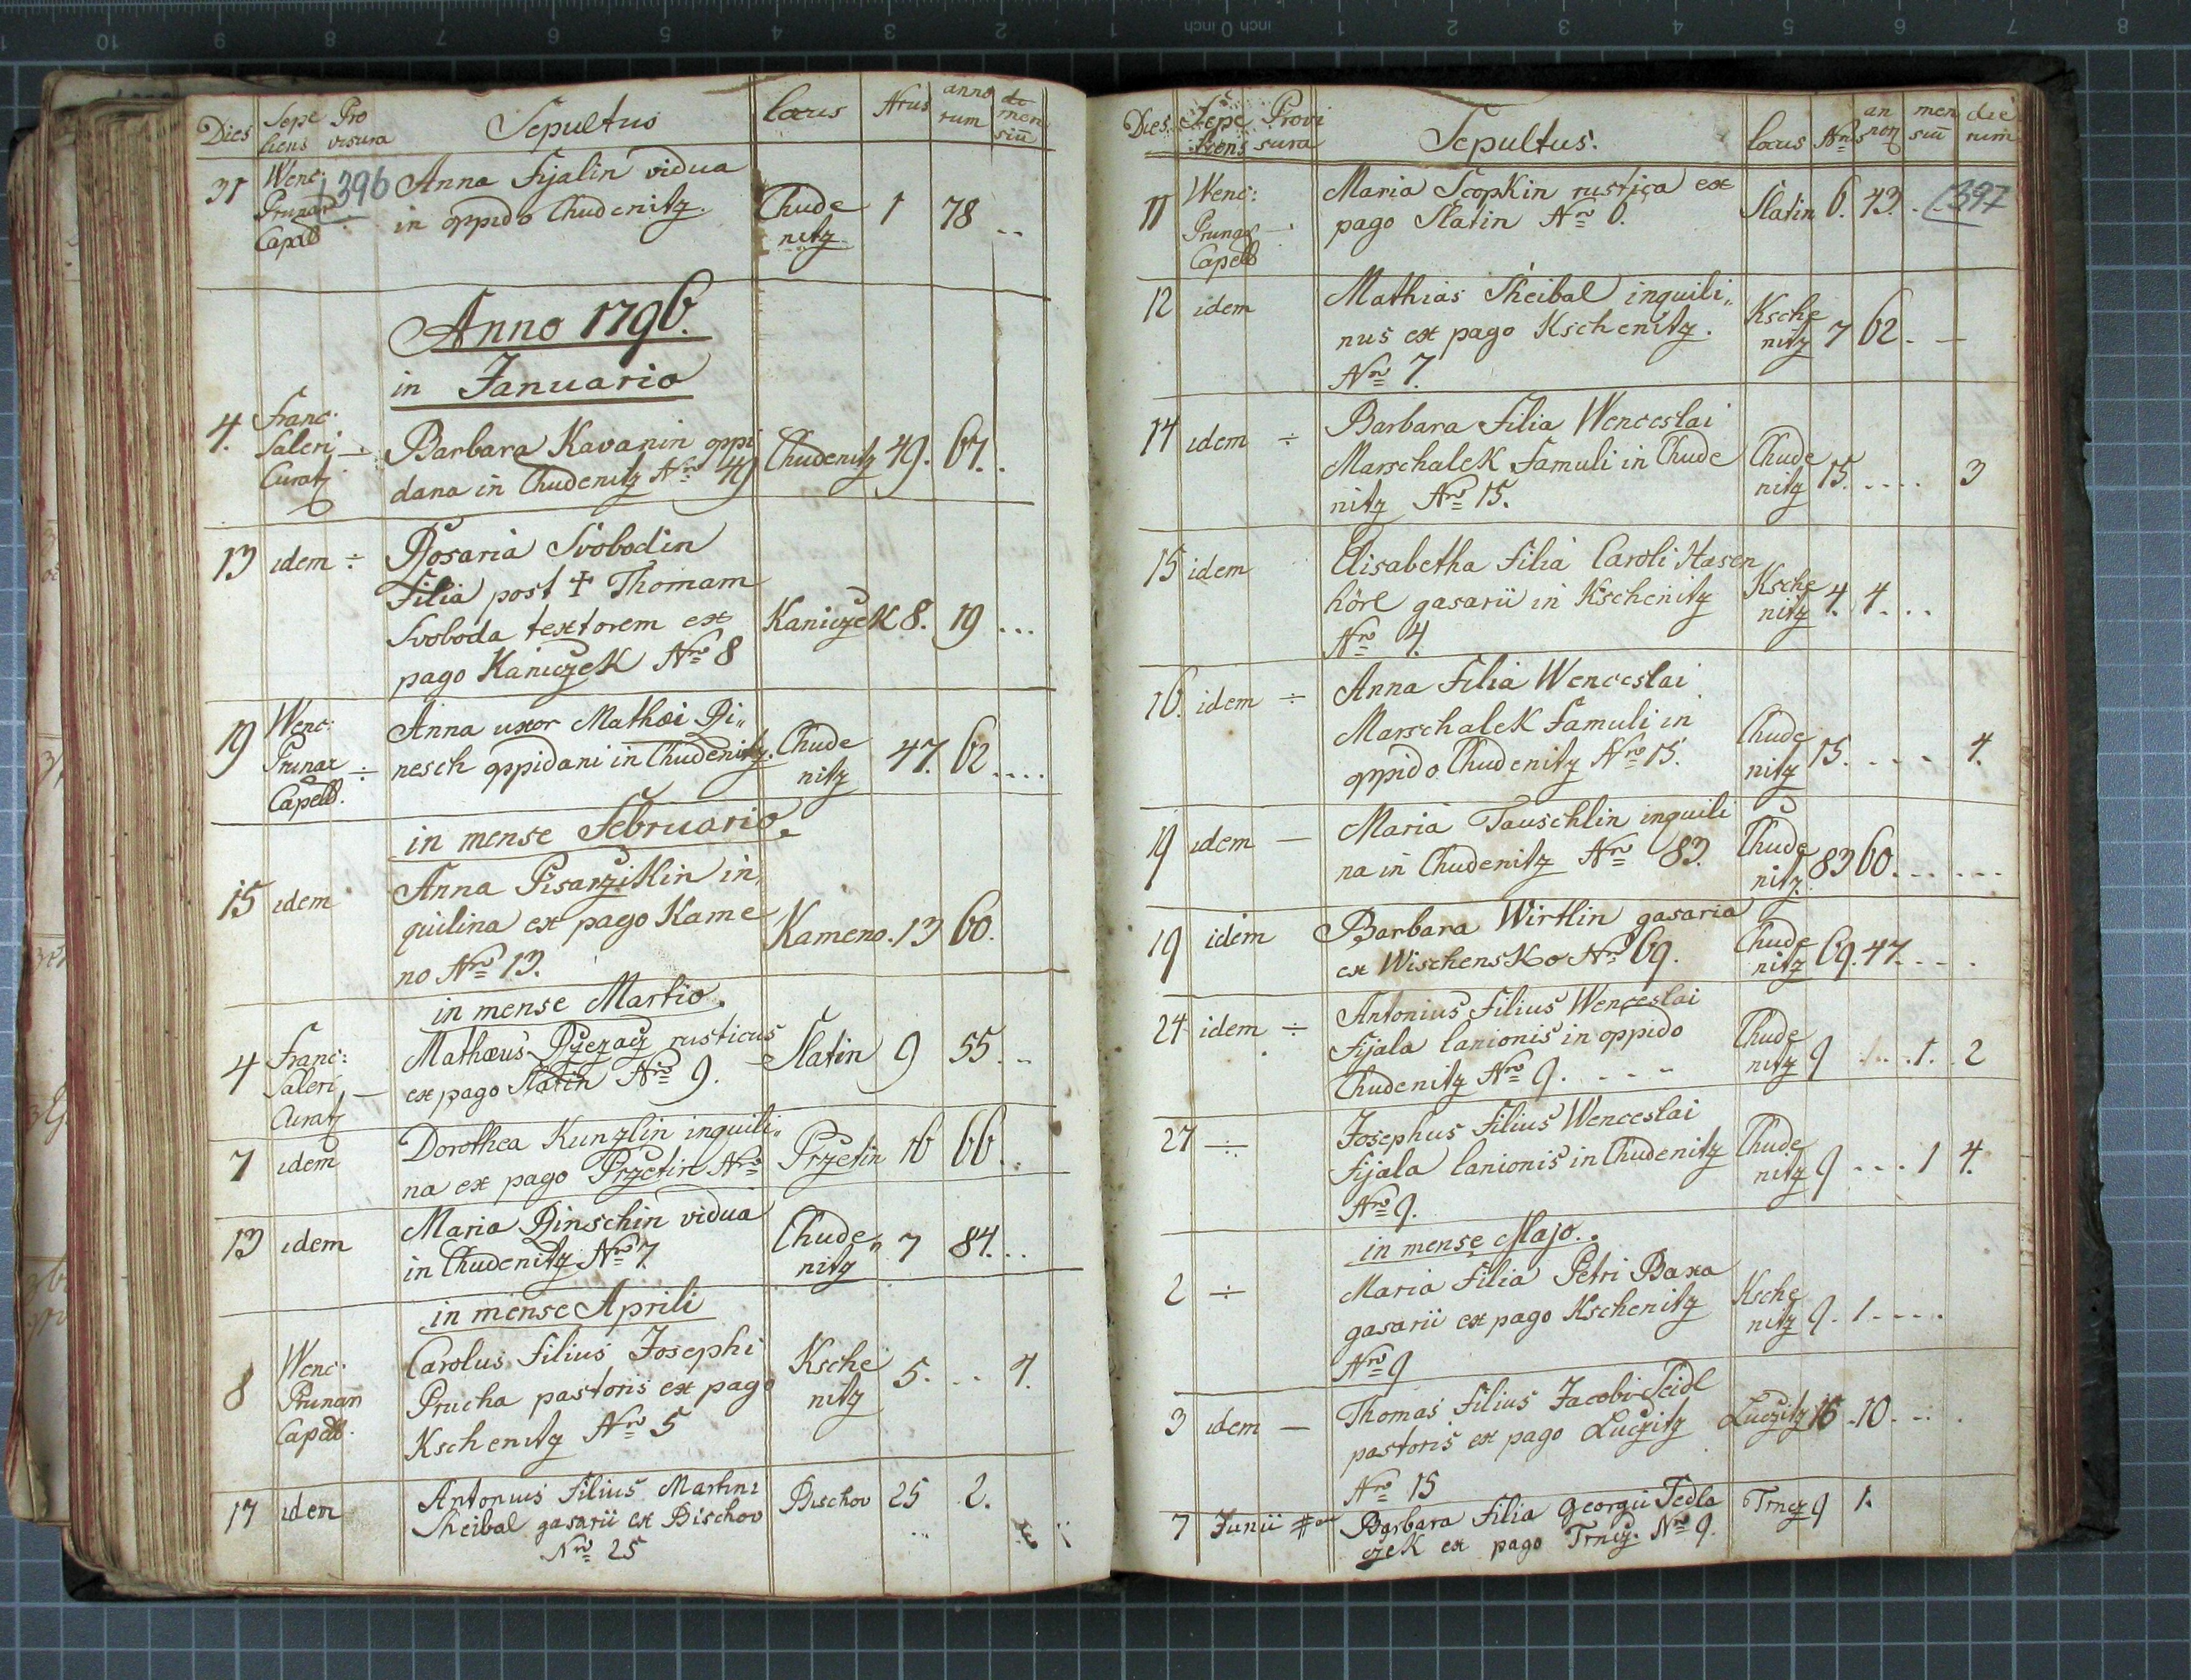 Dies Sepe liens Pro visura Sepultus locus Nrus anno rum di men siū
31 Wenc: Prunar Capell 396 Anna Fijalin vidua
in oppido Chudenitz. Chude nitz 1 78 ..
Anno 1796.
in Januario
4. Franc: Saleri Curat Barbara Kavanin oppi
dana in Chudenitz Nro 49 Chudenitz 49. 67..
13 idem ÷ Rosaria Svobodin
Filia post + Thomam
Svoboda textorem ex
pago Kaniczek Nro 8 Kaniczek 8. 19 ...
19 Wenc: Prunar Capell. ÷ Anna uxor Mathæi Di„
nesch oppidani in Chudenitz. Chude nitz 47. 62 ....
in mense Februario.
15 idem Anna Pisarzikin in,
quilina ex pago Kame
no Nro 13. Kameno. 13 60.
in mense Martio.
4 Franc: Saleri Curat — Mathæus rusticus
ex pago Slatin Nro 9. Slatin 9 55. ..
7 idem Dorothea Kunzlin inquili„
na ex pago Przetin Nro Przetin 16 66..
13 idem Maria Dinschin vidua
in Chudenitz Nro 7 Chude„ nitz 7 84...
in mense Aprili
8 Wenc: Prunar Capell. Carolus Filius Josephi
Prucha pastoris ex pago
Kschenitz Nro 5 Ksche nitz 5. .. 4.
17 idem Antonius Filius Martini
Sheibal gasarii ex Bischov
Nro 25 Bischov 25 2. ...
Dies Sepe liens Provi sura Sepultus. locus Nrus an noꝝ men siū die rum
11 Wenc: Prunar Capell — Maria Scopkin rustica ex
pago Slatin Nro 6. Slatin 6. 43. .. 397
12 idem Mathias Sheibal inquili„
nus ex pago Kschenitz.
Nro 7. Ksche nitz 7 62. —
14 idem ÷ Barbara Filia Wenceslai
Marschalek Famuli in Chude
nitz Nro 15. Chude nitz 15. .... 3
15 idem Elisabetha Filia Caroli Hasen
hörl gasarii in Kschenitz
Nro 4. Ksche nitz 4. 4. ..
16. idem ÷ Anna Filia Wenceslai
Marschalek Famuli in
oppido Chudenitz Nro 15. Chude nitz 15. .... 4.
19 idem — Maria Tauschlin inquili
na in Chudenitz Nro 83. Chude nitz. 83 60. .....
19 idem Barbara Wirtlin gasaria
ex Wischensko Nro 69. Chude nitz 69. 47. ...
24 idem ÷ Antonius Filius Wenceslai
Fijala lanionis in oppido
Chudenitz Nro 9. . - - - Chude nitz 9 ... 1. . 2
27 ÷ Josephus Filius Wenceslai
Fijala lanionis in Chudenitz
Nro 9. Chude nitz 9 ... 1 4.
in mense Majo..
2 ÷ Maria Filia Petri Baxa
gasarii ex pago Kschenitz
Nro 9 Ksche nitz 9. 1. ....
3 idem — Thomas Filius Jacobi Seidl
pastoris ex pago Luczitz
Nro 15 Luczitz 15 .10. ..
7 Junii Barbara Filia Georgii Sedla
czek ex pago Trncz. Nro 9. Trncz 9 1.